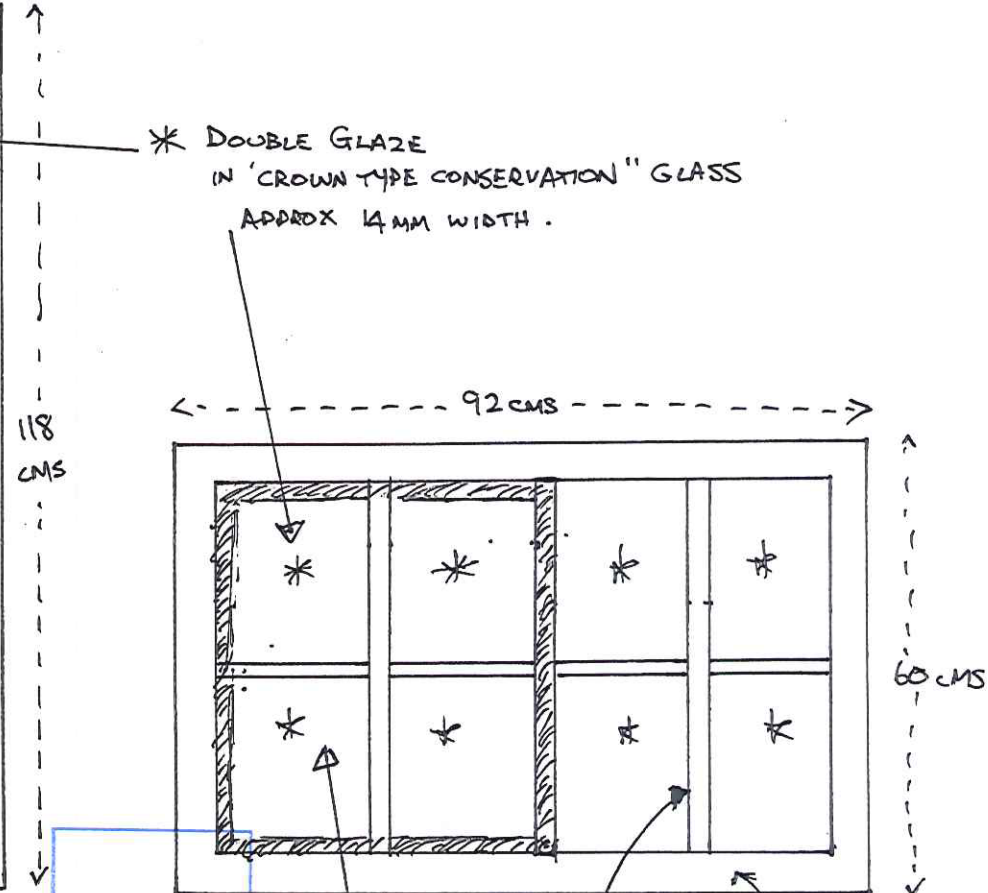 * DOUBLE GLAZE
IN 'CROWN TYPE CONSERVATION" GLASS
APPROX 14MM WIDTH.
92 CMS
118
CMS
60 CMS
* * * *
* * * *